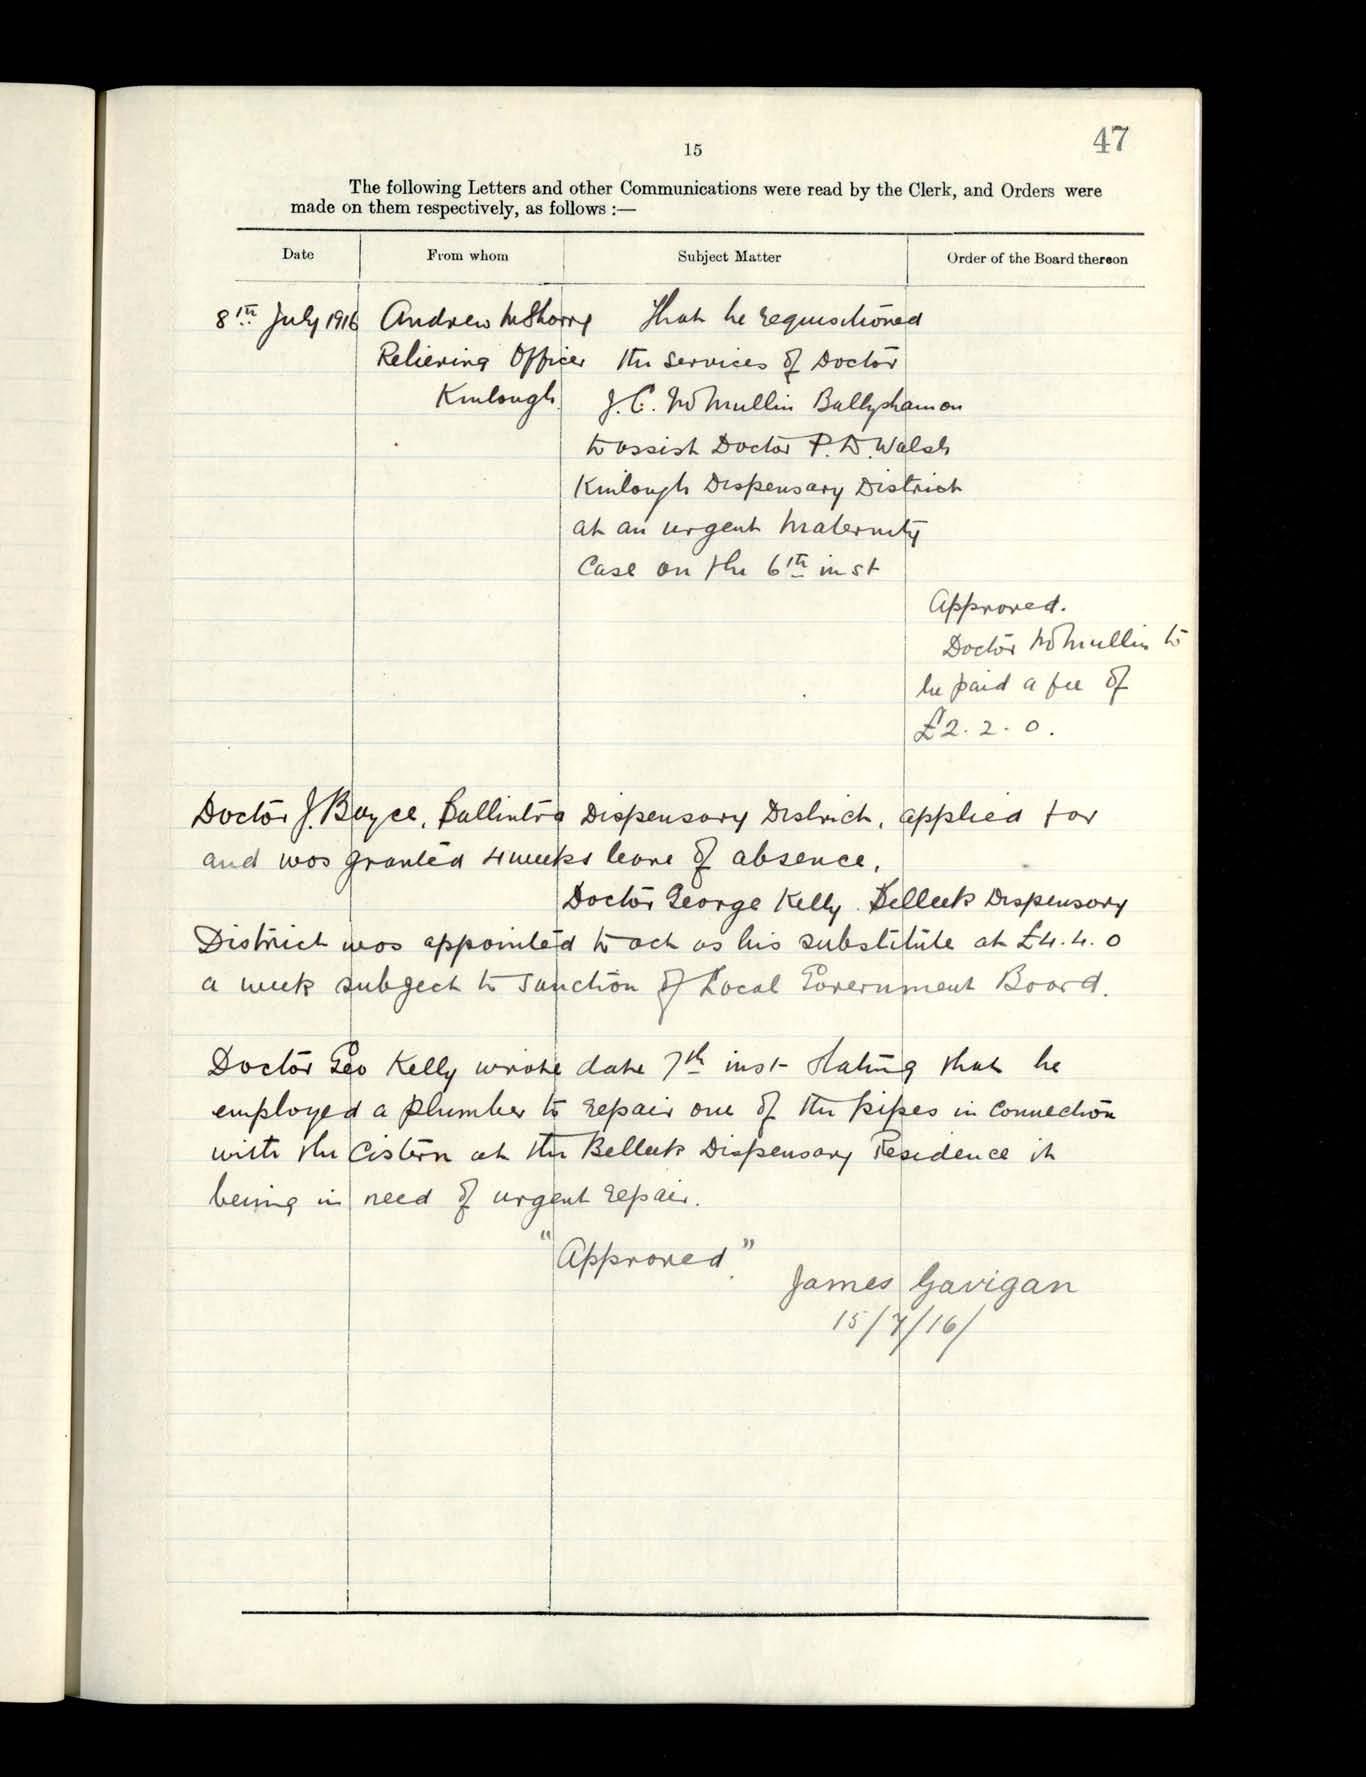 47
15
The following Letters and other Communications were read by the Clerk, and Orders were
made on them respectively, as follows :—
Date From whom Subject Matter Order of the Board thereon
8th July 1916 Andrew McSharry That he requisitioned
Relieving Officer the services of Doctor
Kinlough J. C. McMullin Ballyshannon
to assist Doctor P. D. Walsh
Kinlough Dispensary District
at an urgent Maternity
Case on the 6th inst
Approved.
Doctor McMullin to
be paid a fee of
£2. 2. 0.
Doctor J. Boyce, Ballintra Dispensary District, applied for
and was granted 4 weeks leave of absence.
Doctor George Kelly. Belleek Dispensary
District was appointed to act as his substitute at £4. 4. 0
a week subject to sanction of Local Government Board.
Doctor Geo Kelly wrote date 7th inst stating that he
employed a plumber to repair one of the pipes in connection
with the cistern at the Belleek Dispensary Residence it
being in need of urgent repair.
"Approved."
James Gavigan
15/7/16/